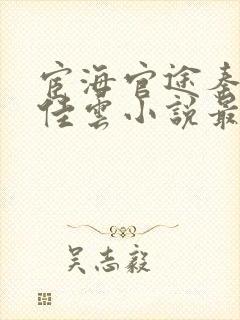 宦海官途秦
佳雲小說最
吴志毅